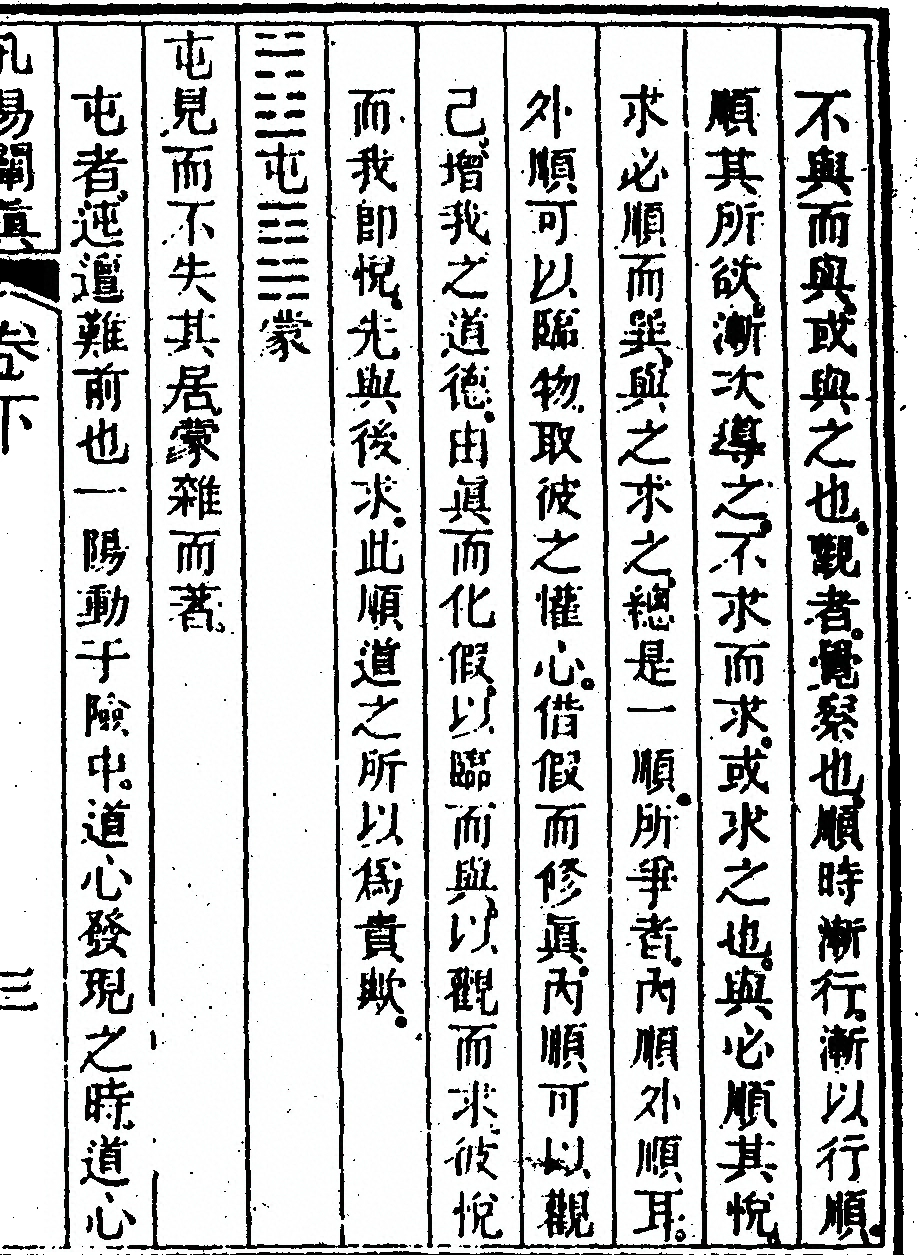 不與而與。或與之也。觀者。覺察也。順時漸行。漸以行順。
順其所欲。漸次導之。不求而求。或求之也。與必順其悅。
求必順而巽。與之求之。總是一順。所爭者。內順外順耳。
外順可以臨物。取彼之懽心。借假而修眞。內順可以觀
己。增我之道德。由眞而化假。以臨而與。以觀而求。彼悅
而我卽悅。先與後求。此順道之所以爲貴歟。
䷂屯䷃蒙
屯見而不失其居。蒙雜而著。
屯者。迍邅難前也。一陽動于險中。道心發現之時。道心
孔易闡眞 卷下 三